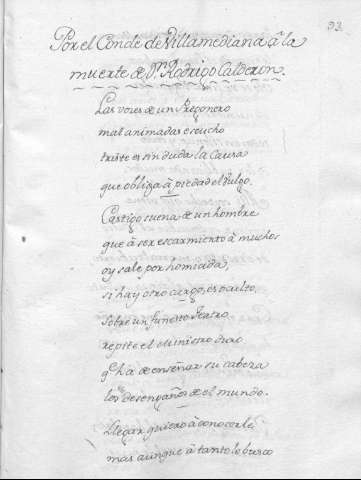 93.
Por el Conde de Villamediana a la
muerte de Dn. Rodrigo Calderon.
Las vozes de un Pregonero
mal animadas escucho
triste es sin duda la causa
que obliga à piedad el Vulgo.
Castigo suena de un hombre
que à ser escarmiento à muchos
oy sale por homicida,
si hay otro cargo, es oculto,
sobre un funesto Teatro
repite el Ministro duro
qe. ha de enseñar su cabeza
los desengaños de el mundo.
Llegar quiero à conocerle
mas aunque à tanto lo busco